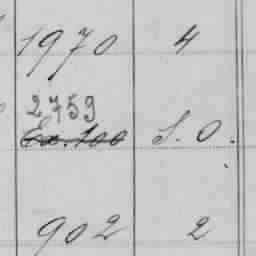 1970 4
2759
Ex. 100 S. O.
902 2